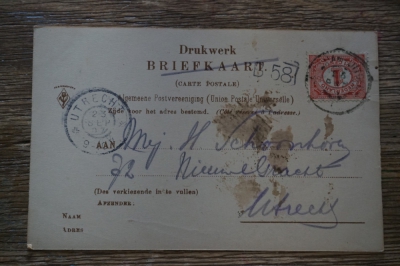 Drukwerk
BRIEFKAART.
(CARTE POSTALE)
58
1
Algemeene Postvereeniging (Union Postale Universelle)
Zijde voor het adres bestemd. (Côté réservé à l'adresse.)
UTRECHT
AAN
Mej. H
72 Nieuwe Gracht
(Des verkiezende in te vullen)
AFZENDER:
Utrecht
NAAM
ADRES